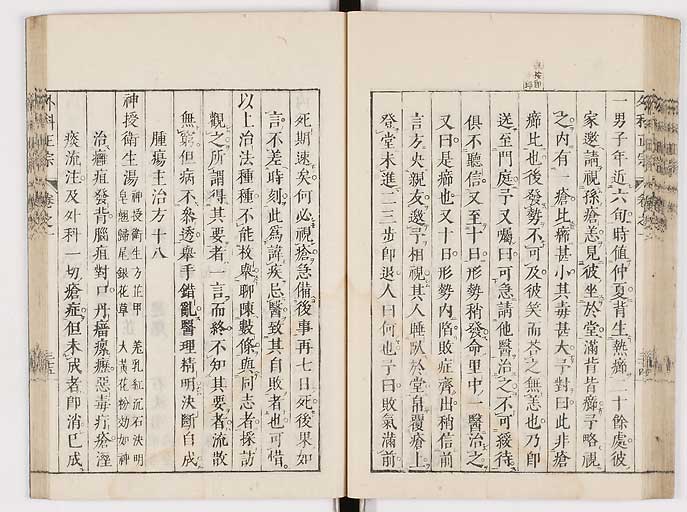 一男子年近六旬時值仲夏背生熱癤二十餘處彼
家邀請視孫瘡恙見彼坐於堂滿背皆癤予略視
之內有一瘡比癤甚小其毒甚大予對曰此非瘡
癤比也後發勢不可及彼笑而荅之無恙也乃即
送至門庭予又囑曰可急請他醫治之不可緩待
俱不聽信又至十日形勢稍發命里中一醫治之
又曰是癤也又十日形勢內陷敗症齊出稍信前
言方央親友邀予相視其人睡臥於堂帛覆瘡上
登堂未進二三步卽退人曰何也予曰敗氣滿前
死期速矣何必視瘡急備後事再七日死後果如
言不差時刻此為諱疾忌醫致其自敗者也可惜
以上治法種種不能枚舉聊陳數條與同志者採訪
觀之所謂得其要者一言而終不知其要者流散
無窮但病不叅透舉手錯亂醫理精明決斷自成
腫瘍主治方十八
神授衛生湯
神授衛生方芷甲 羌乳紅沉石決明
皂翹歸尾銀花草 大黃花粉効如神
治癰疽發背腦疽對口丹瘤瘰癧惡毒疔瘡溼
痰流注及外科一切瘡症但未成者卽消已成
外科正宗
卷之一
外科正宗
卷之一